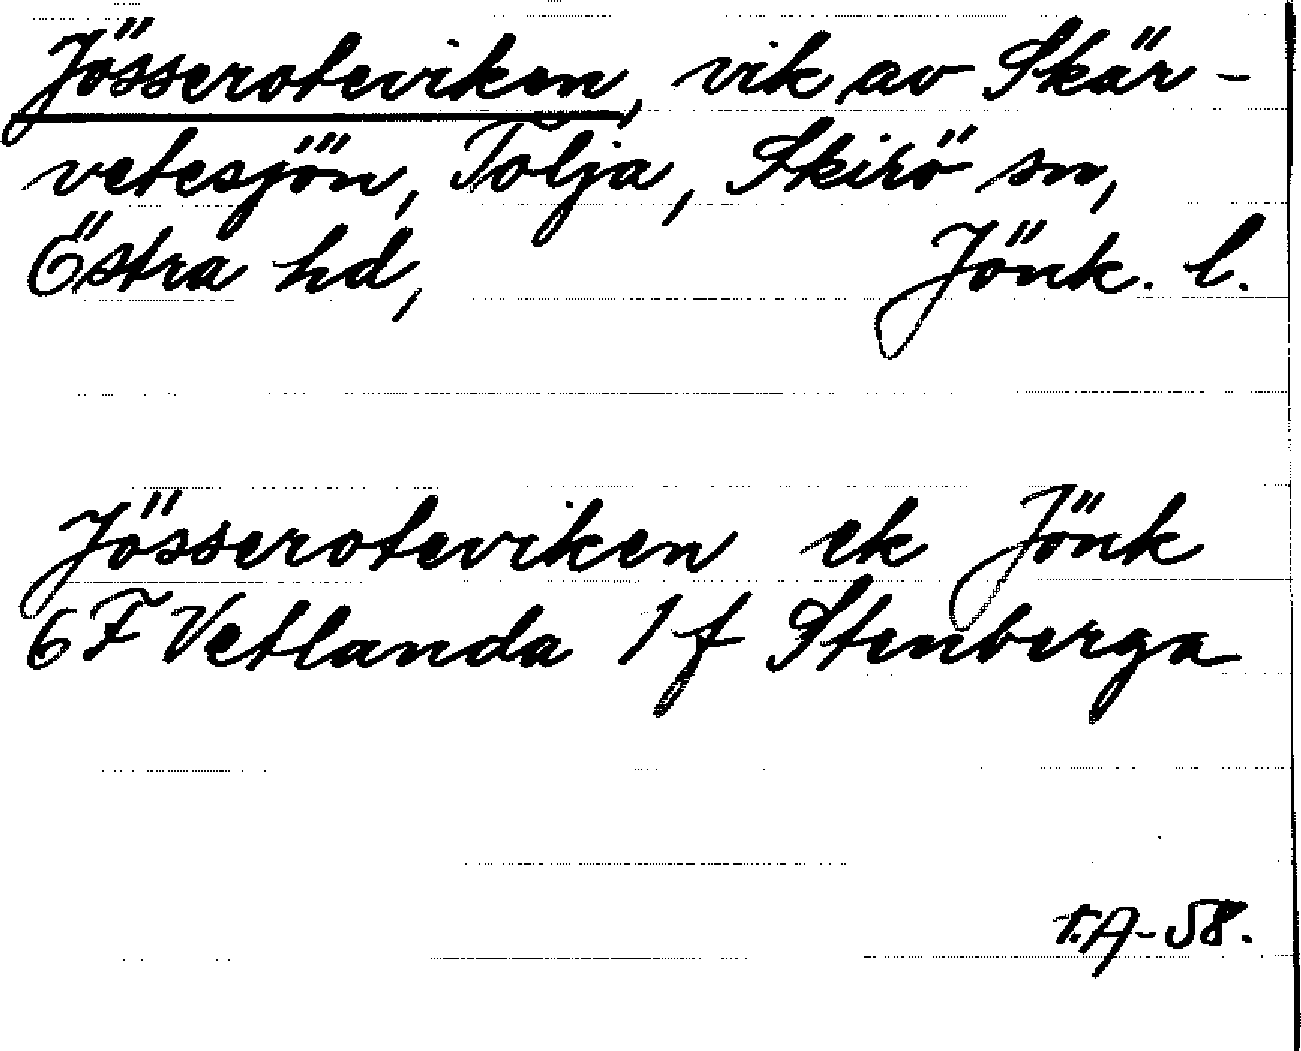 Jösseroteviken, vik av Skär-
vetesjön, Tolja, Skirö sn,
Östra hd, Jönk. l.
Jösseroteviken ek Jönk
6F Vetlanda 1f Stenberga
T.A-58.